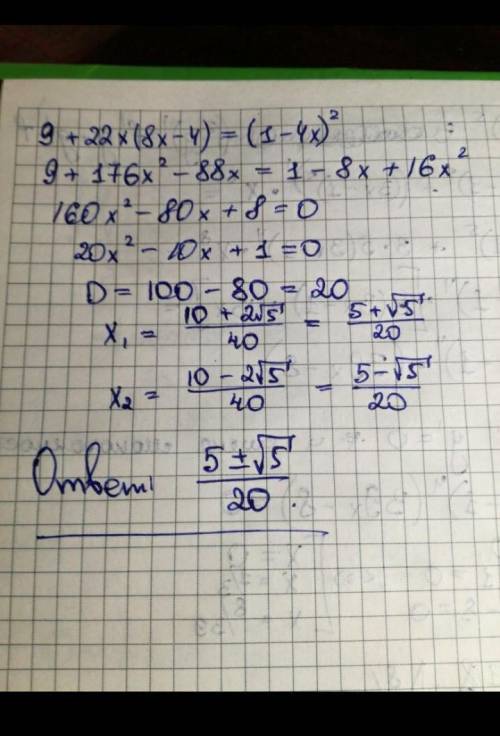 9 + 22x(8x-4) = (1-4x)²
9 + 176x² - 88x = 1 - 8x + 16x²
160x² - 80x + 8 = 0
20x² - 10x + 1 = 0
D = 100 - 80 = 20
x₁ = (10 + 2√5)/40 = (5 + √5)/20
x₂ = (10 - 2√5)/40 = (5 - √5)/20
Ответ: (5 ± √5)/20.